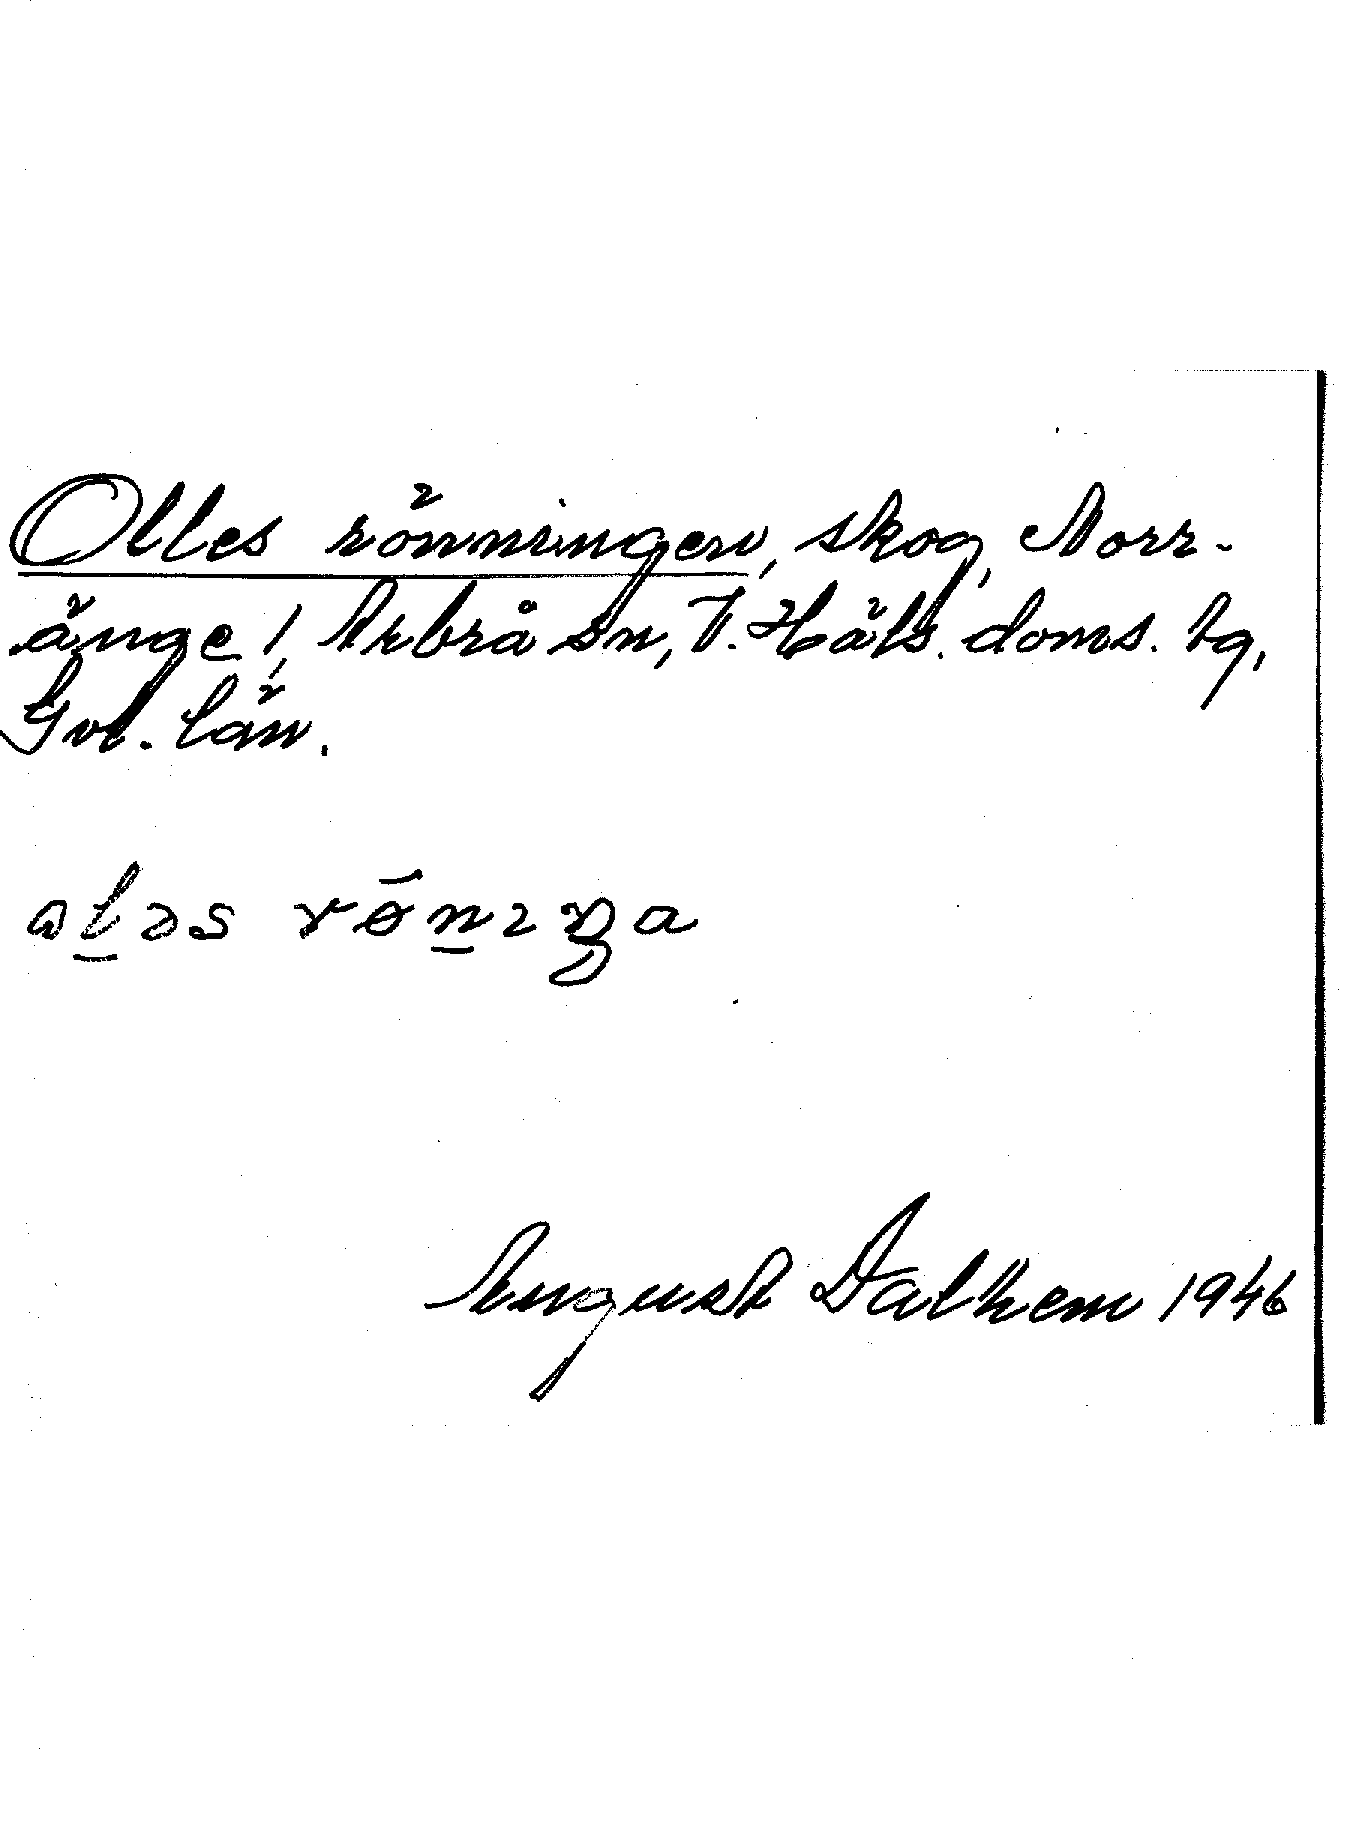 Olles rönningen, skog, Norr-
änge!, Arbrå sn, V. Häls. doms. tg,
Gvl. län.
ɷl̲əs rø̄n̲ɪŋa
August Dalhem 1946